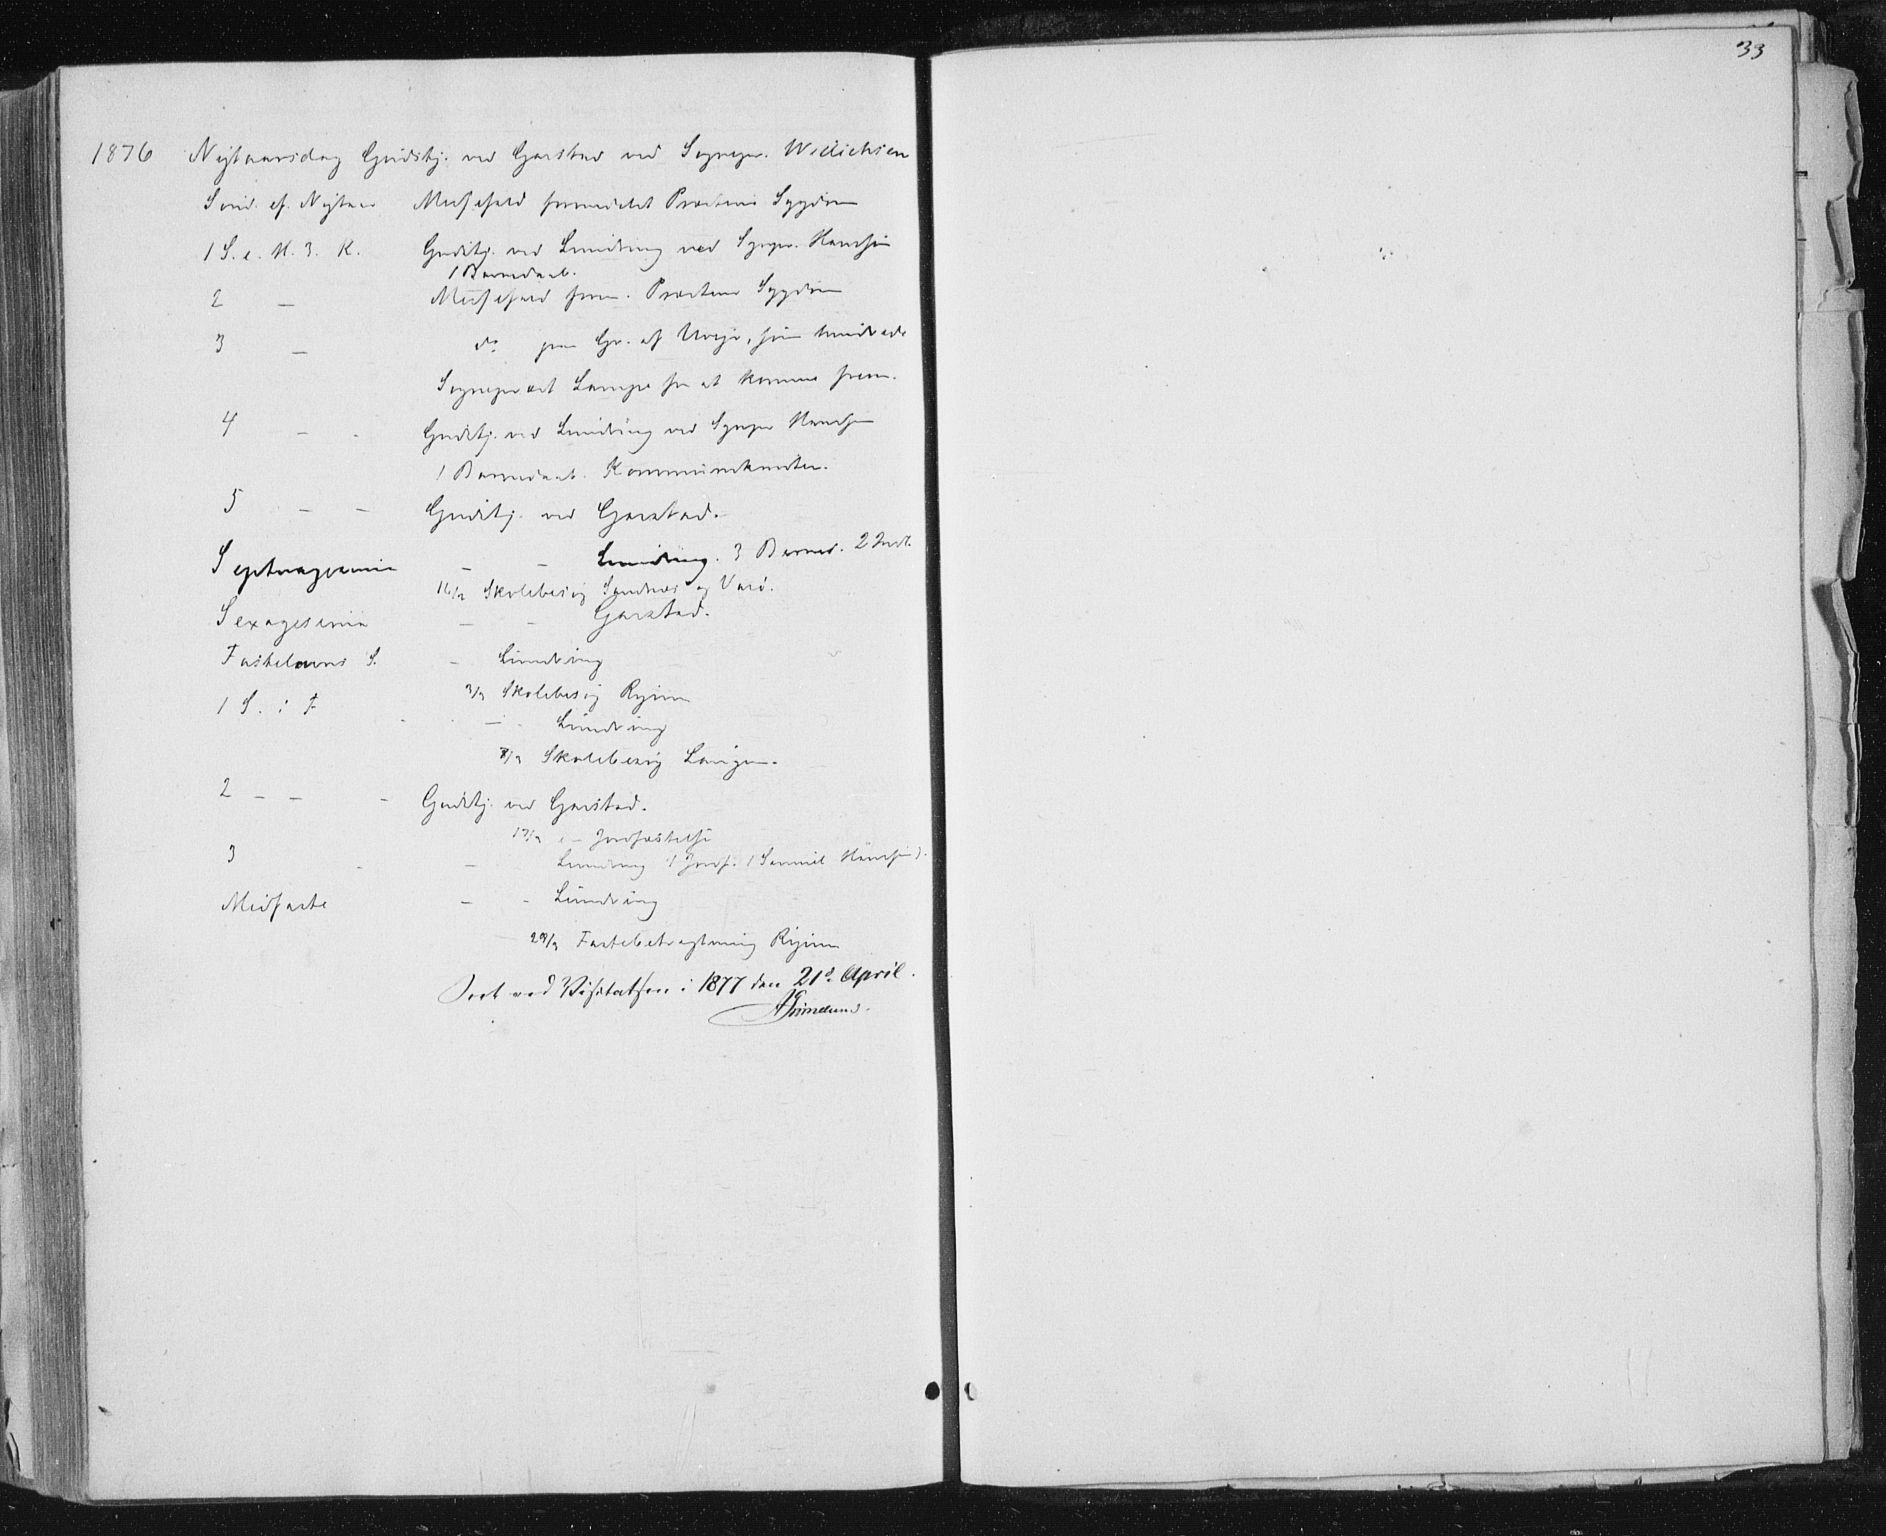 33
1876 Nytaarsdag Gudstj. ved Garstad ved Sognepr. Wellichsen
Sønd. ef. Nytaar Messefald formedelst Præstens Sygdom
1 S. e. H. 3. K. Gudstj. ved Lundring ved Sognepr. Hansen
1 Barnedaab.
2 — Messefald form. Præstens Sygdom
3 — do paa Gr. af Uveir, som hindrede
Sognepræst Lampe fra at komme frem.
4 — - Gudstj. ved Lundring ved Sognepr Hansen
1 Barnedaab. Kommunikanter.
5 — — Gudstj. ved Garstad.
Septuagesima — — Lundring. 3 Barned. 2 Introd.
16/2 Skolebesøg Sandnes og Varø.
Sexagesima — — Garstad.
Fastelavns S. — Lundring
3/3 Skolebesøg Ryum
1 S. i F. — - Lundring
8/3 Skolebesøg Laugen.
2 — — - Gudstj. ved Garstad.
17/3 — Jordfæstelse
3 - — Lundring 1 Jordf. (Samuel Hansen).
Midfaste — - Lundring
29/3 Fastebetragtning Ryum
Seet ved Visitatsen i 1877 den 21de April.
Grimelund.